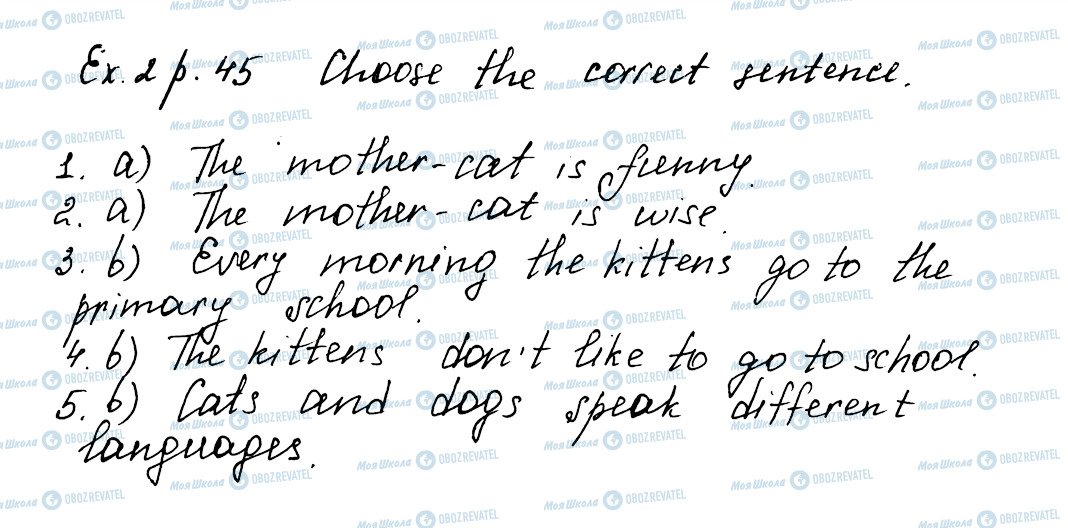 Ex. 2 p. 45 Choose the correct sentence.
1. a) The mother-cat is funny.
2. a) The mother-cat is wise.
3. b) Every morning the kittens go to the
primary school.
4. b) The kittens don't like to go to school.
5. b) Cats and dogs speak different
languages.